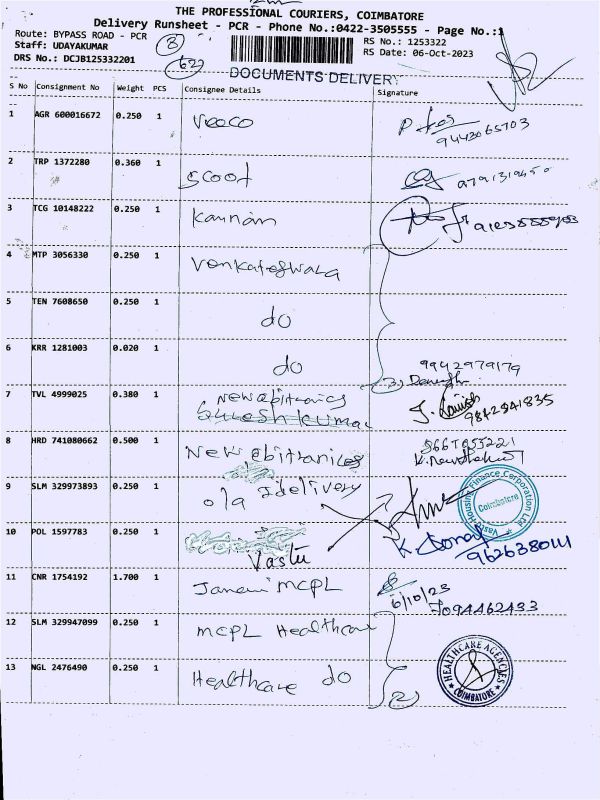 THE PROFESSIONAL COURIERS, COIMBATORE
Delivery Runsheet - PCR - Phone No.:0422-3505555 - Page No.:1
Route: BYPASS ROAD - PCR
RS No.: 1253322
Staff: UDAYAKUMAR
RS Date: 06-Oct-2023
DRS No.: DCJB125332201
DOCUMENTS DELIVERY
S No Consignment No Weight PCS Consignee Details Signature
1 AGR 600016672 0.250 1
2 TRP 1372280 0.360 1 Scoot
3 TCG 10148222 0.250 1 Kannan
4 MTP 3056330 0.250 1 Venkateswara
5 TEN 7608650 0.250 1 do
6 KRR 1281003 0.020 1 do 9942979179
7 TVL 4999025 0.380 1 9842941835
8 HRD 741080662 0.500 1 New
9 SLM 329973893 0.250 1 ola delivery
Vastu Housing Finance Corporation Ltd
Coimbatore
10 POL 1597783 0.250 1 Vastu 9626380111
11 CNR 1754192 1.700 1 Janani MCPL 6/10/23
7094462433
12 SLM 329947099 0.250 1 MCPL Healthcare
13 NGL 2476490 0.250 1 Healthcare do
HEALTHCARE AGENCIES
COIMBATORE